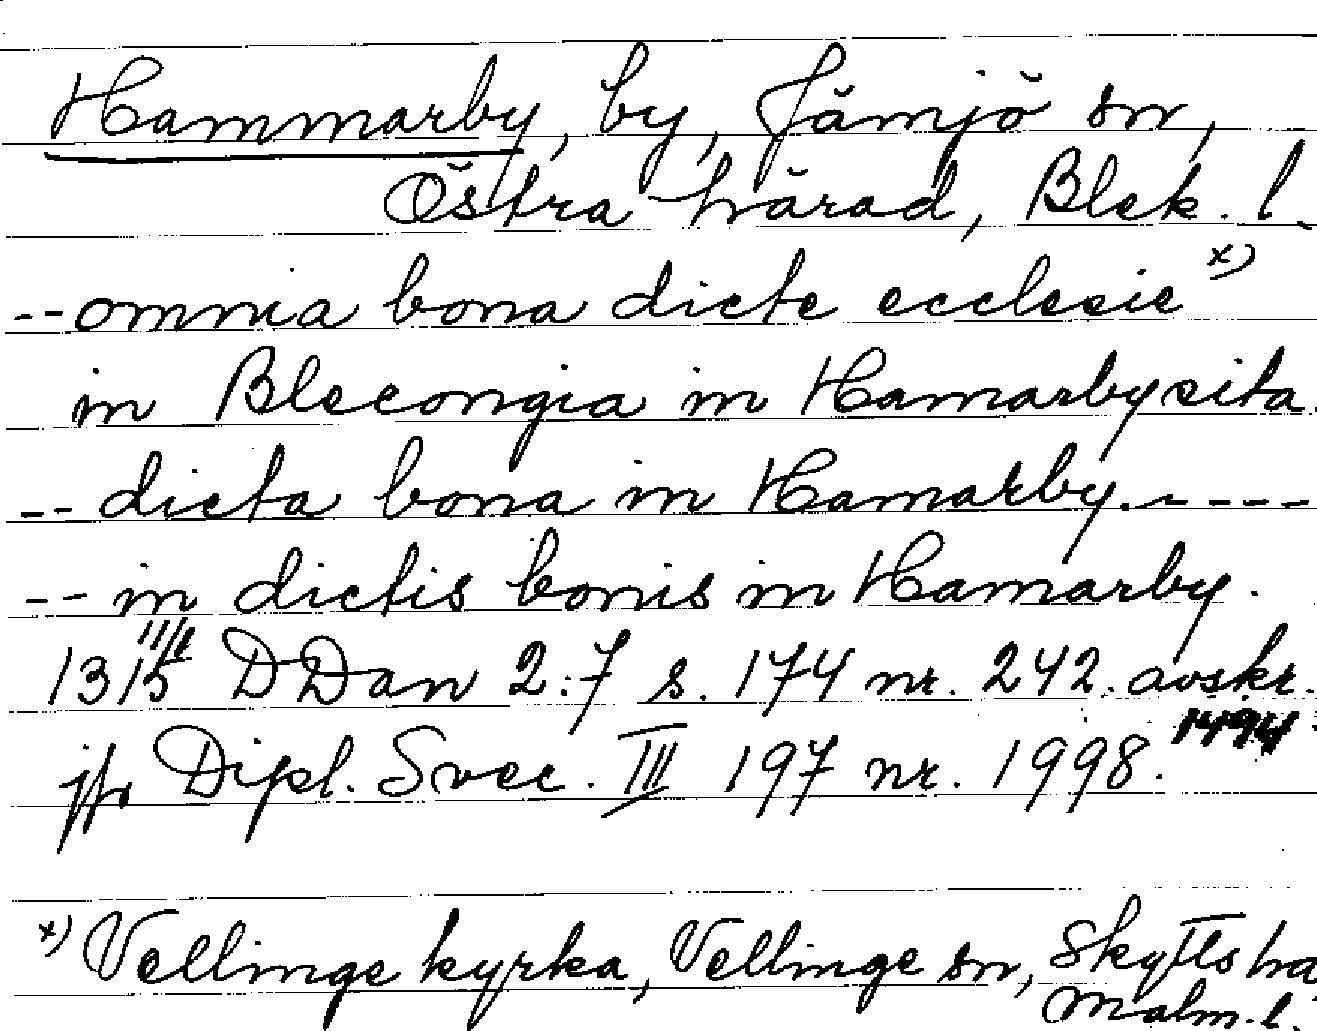 Hammarby, by, Jämjö sn,
Östra härad, Blek. l.
-- omnia bona dicte ecclesie x)
in Blecongia in Hamarby sita.
-- dicta bona in Hamarby. - - - -
-- in dictis bonis in Hamarby.
1315 DDan 2:7 s. 174 nr. 242. avskr.
1494
jfr Dipl. Svec. III 197 nr. 1998.
x) Vellinge kyrka, Vellinge sn, Skytts hd
Malm. l.